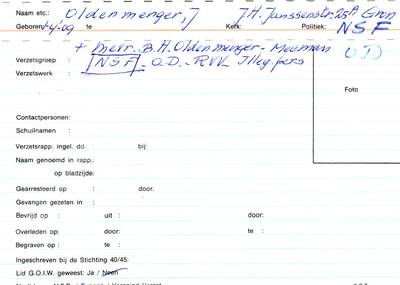 Naam etc.: Oldenmenger, J JH. Janssenstr. 25A Gron
Geboren: 1-4-09 te Kerk: Politiek: NSF
+ mevr. B.H. Oldenmenger-Meeman OD
Verzetsgroep : NSF - O.D. - RVV Illeg. pers
Verzetswerk :
Foto
Contactpersonen:
Schuilnamen :
Verzetsrapp. ingel. dd. bij:
Naam genoemd in rapp.:
op bladzijde:
Gearresteerd op : door:
Gevangen gezeten in :
Bevrijd op : uit : door:
Overleden op: door: te :
Begraven op : te :
Ingeschreven bij de Stichting 40/45:
Lid G.O.I.W. geweest: Ja / Neen